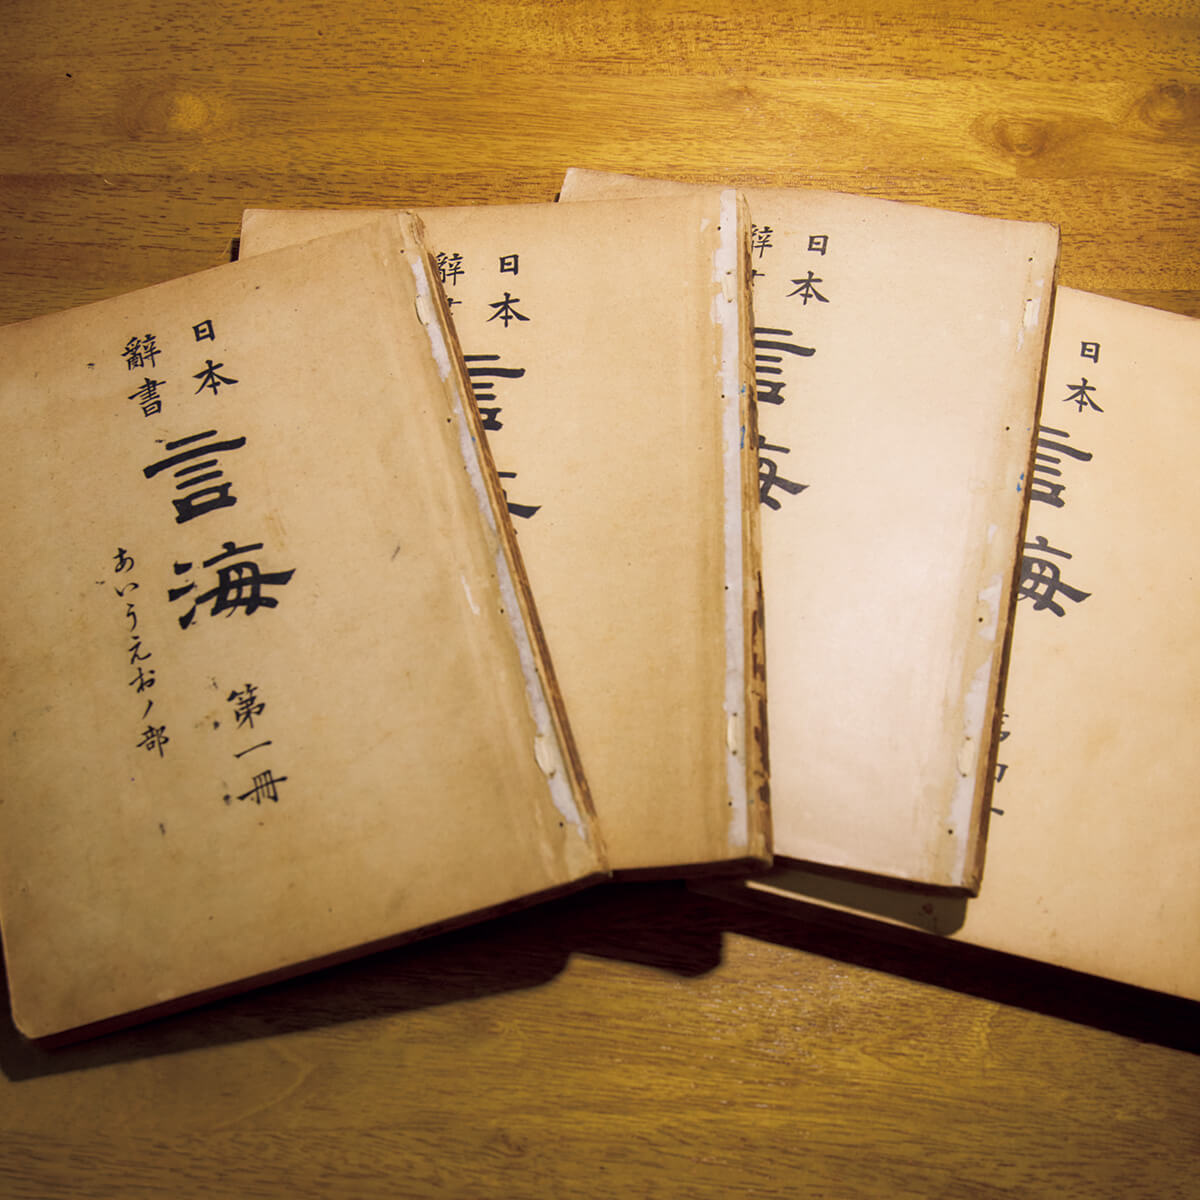 日本
辭書
言海
第一冊
あいうえおノ部
日本
辭
言
日本
辭
言海
日本
言海